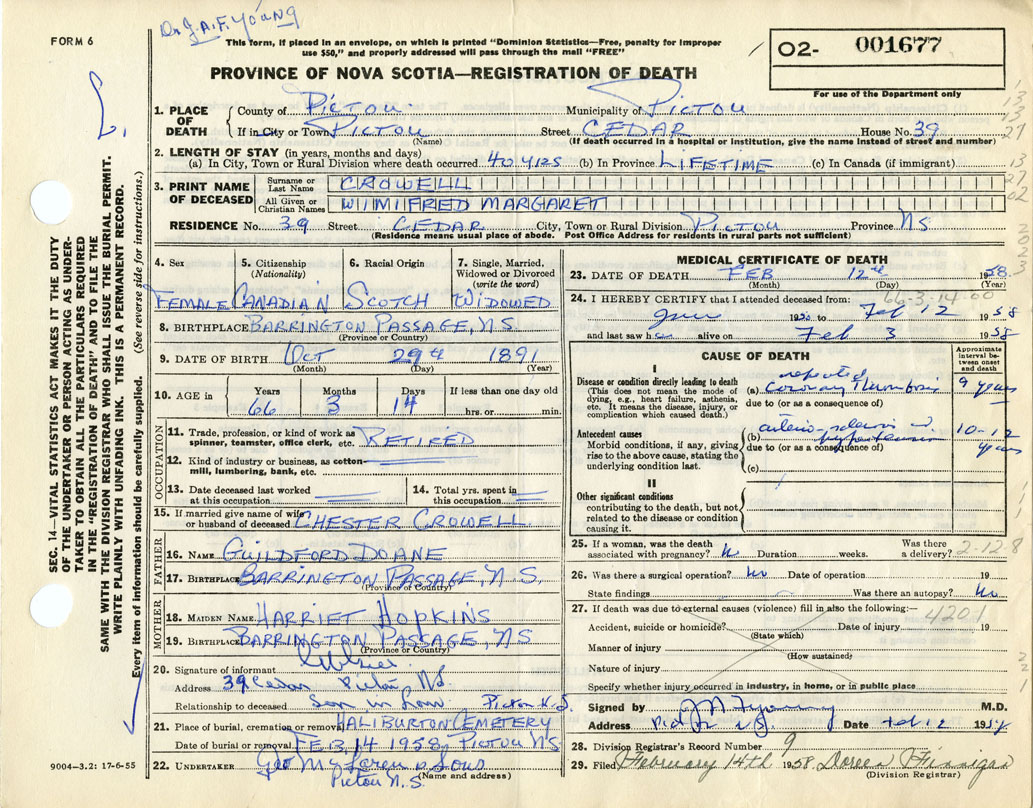 Dr. J.A.F. Young
FORM 6
This form, if placed in an envelope, on which is printed "Dominion Statistics—Free, penalty for improper
use $50," and properly addressed will pass through the mail "FREE"
O2- 001677
For use of the Department only
PROVINCE OF NOVA SCOTIA—REGISTRATION OF DEATH
SEC. 14—VITAL STATISTICS ACT MAKES IT THE DUTY
OF THE UNDERTAKER OR PERSON ACTING AS UNDER-
TAKER TO OBTAIN ALL THE PARTICULARS REQUIRED
IN THE "REGISTRATION OF DEATH" AND TO FILE THE
SAME WITH THE DIVISION REGISTRAR WHO SHALL ISSUE THE BURIAL PERMIT.
WRITE PLAINLY WITH UNFADING INK. THIS IS A PERMANENT RECORD.
Every item of information should be carefully supplied. (See reverse side for instructions.)
1. PLACE OF DEATH County of PICTOU Municipality of PICTOU
If in City or Town PICTOU (Name) Street CEDAR House No. 39
(If death occurred in a hospital or institution, give the name instead of street and number)
2. LENGTH OF STAY (in years, months and days)
(a) In City, Town or Rural Division where death occurred 40 YRS (b) In Province LIFETIME (c) In Canada (if immigrant)
3. PRINT NAME OF DECEASED Surname or Last Name CROWELL
All Given or Christian Names WINIFRED MARGARET
RESIDENCE No. 39 Street CEDAR City, Town or Rural Division PICTOU Province NS
(Residence means usual place of abode. Post Office Address for residents in rural parts not sufficient)
4. Sex 5. Citizenship (Nationality) 6. Racial Origin 7. Single, Married, Widowed or Divorced (write the word)
FEMALE CANADIAN SCOTCH WIDOWED
8. BIRTHPLACE BARRINGTON PASSAGE, N.S.
(Province or Country)
9. DATE OF BIRTH Oct 29th 1891
(Month) (Day) (Year)
10. AGE in Years Months Days If less than one day old
66 3 14 hrs. or min.
OCCUPATION
11. Trade, profession, or kind of work as spinner, teamster, office clerk, etc. RETIRED
12. Kind of industry or business, as cotton-mill, lumbering, bank, etc.
13. Date deceased last worked at this occupation 14. Total yrs. spent in this occupation
15. If married give name of wife or husband of deceased CHESTER CROWELL
FATHER
16. NAME GUILDFORD DOANE
17. BIRTHPLACE BARRINGTON PASSAGE, N.S.
(Province or Country)
MOTHER
18. MAIDEN NAME HARRIET HOPKINS
19. BIRTHPLACE BARRINGTON PASSAGE, NS
(Province or Country)
20. Signature of informant
Address 39 Cedar Pictou N.S.
Relationship to deceased Son in law Pictou N.S.
21. Place of burial, cremation or removal HALIBURTON CEMETERY
Date of burial or removal FEB, 14 1958, Pictou NS
22. UNDERTAKER Geo McLaren & Sons
Pictou N.S. (Name and address)
9004—3.2: 17-6-55
MEDICAL CERTIFICATE OF DEATH
23. DATE OF DEATH FEB 12th 1958
(Month) (Day) (Year)
66-3-14-00
24. I HEREBY CERTIFY that I attended deceased from:
June 1950 to Feb 12 1958
and last saw her alive on Feb 3 1958
CAUSE OF DEATH
Approximate interval between onset and death
I
Disease or condition directly leading to death
(This does not mean the mode of dying, e.g., heart failure, asthenia, etc. It means the disease, injury, or complication which caused death.)
repeated
(a) Coronary Thrombosis 9 years
due to (or as a consequence of)
Antecedent causes
Morbid conditions, if any, giving rise to the above cause, stating the underlying condition last.
(b) arterio-sclerosis hypertension 10-12 years
due to (or as a consequence of)
(c)
II
Other significant conditions
contributing to the death, but not related to the disease or condition causing it.
25. If a woman, was the death associated with pregnancy? No Duration weeks. Was there a delivery?
2-128
26. Was there a surgical operation? No Date of operation 19
State findings Was there an autopsy? No
27. If death was due to external causes (violence) fill in also the following:—
4201
Accident, suicide or homicide? (State which) Date of injury 19
Manner of injury
(How sustained)
Nature of injury
Specify whether injury occurred in industry, in home, or in public place
Signed by J A F Young M.D.
Address Pictou N.S. Date Feb 12 1958
28. Division Registrar's Record Number 9
29. Filed February 14th 1958 Doreen Finnigan
(Division Registrar)